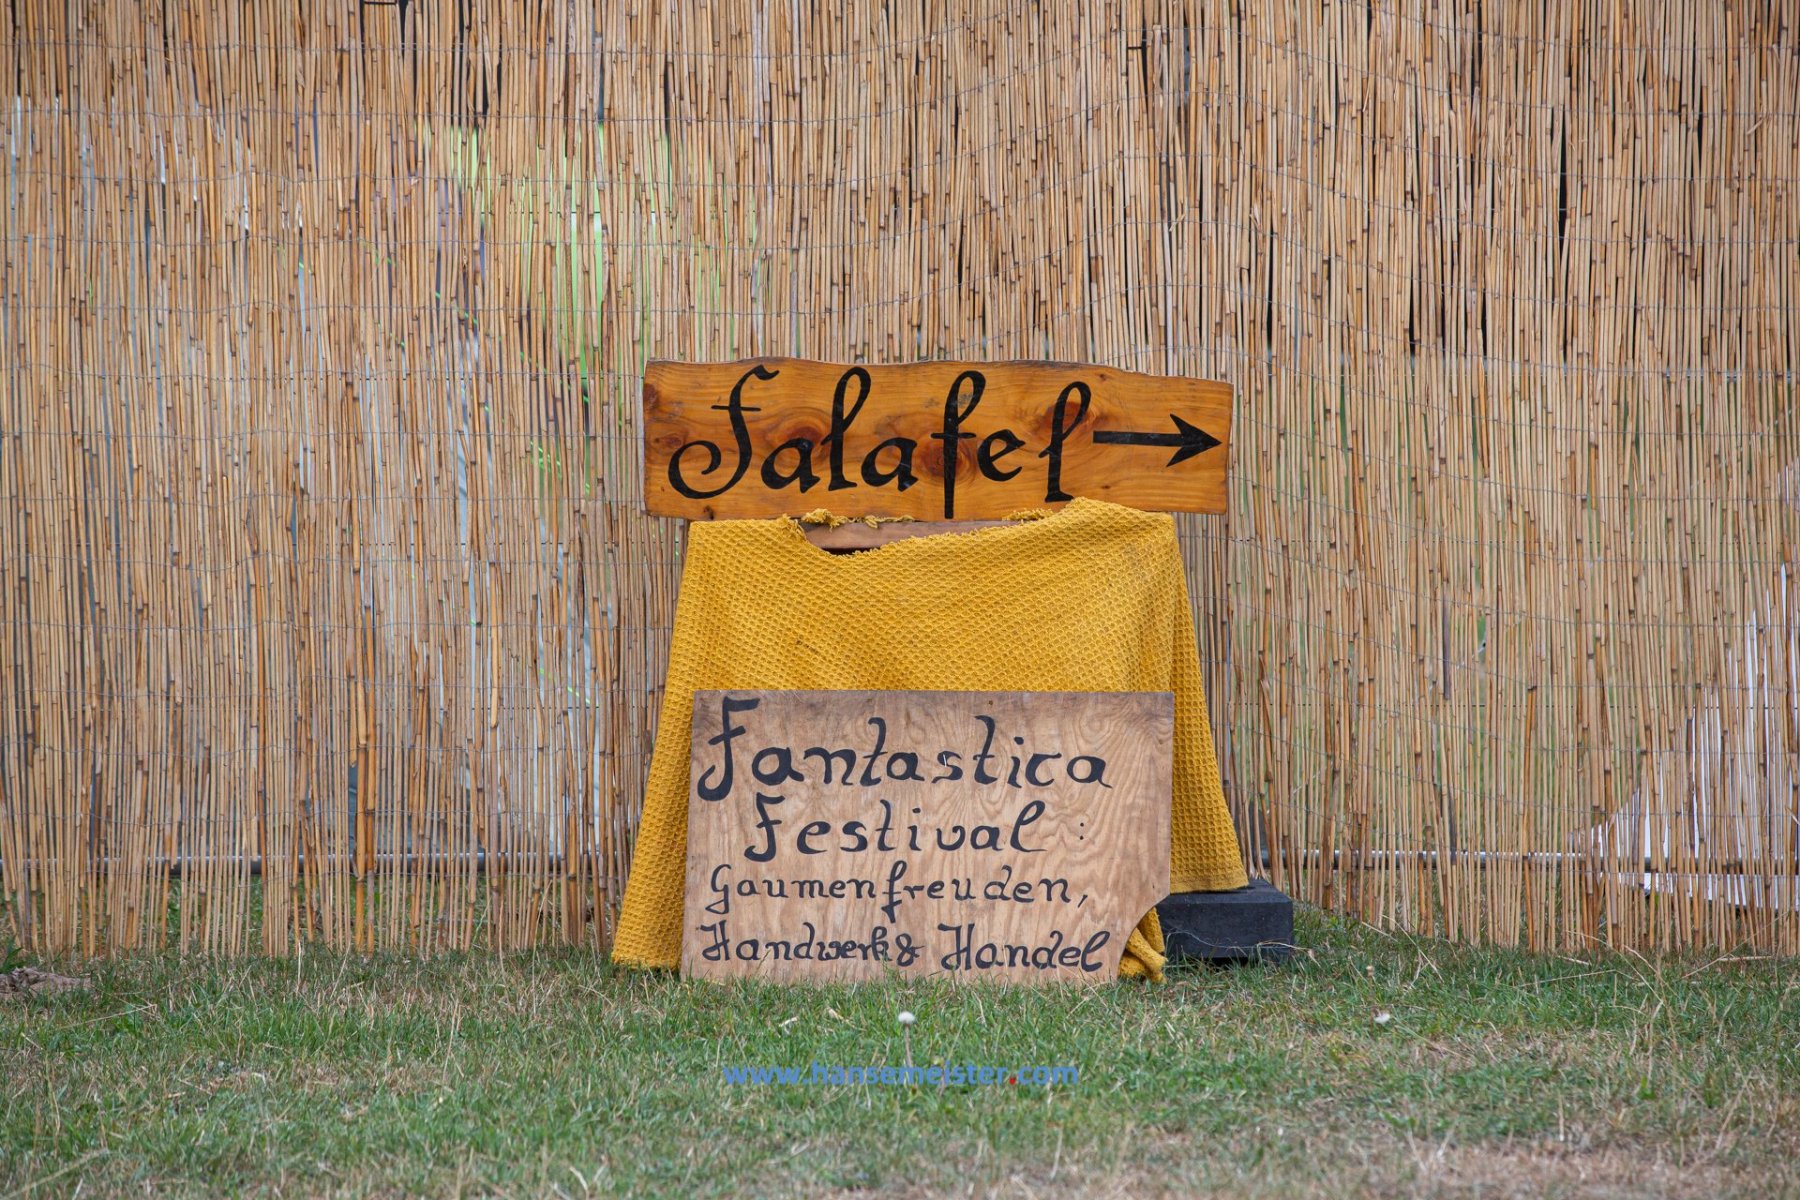 Falafel →
Fantastica
Festival :
Gaumenfreuden,
Handwerk & Handel
www.hansemeister.com